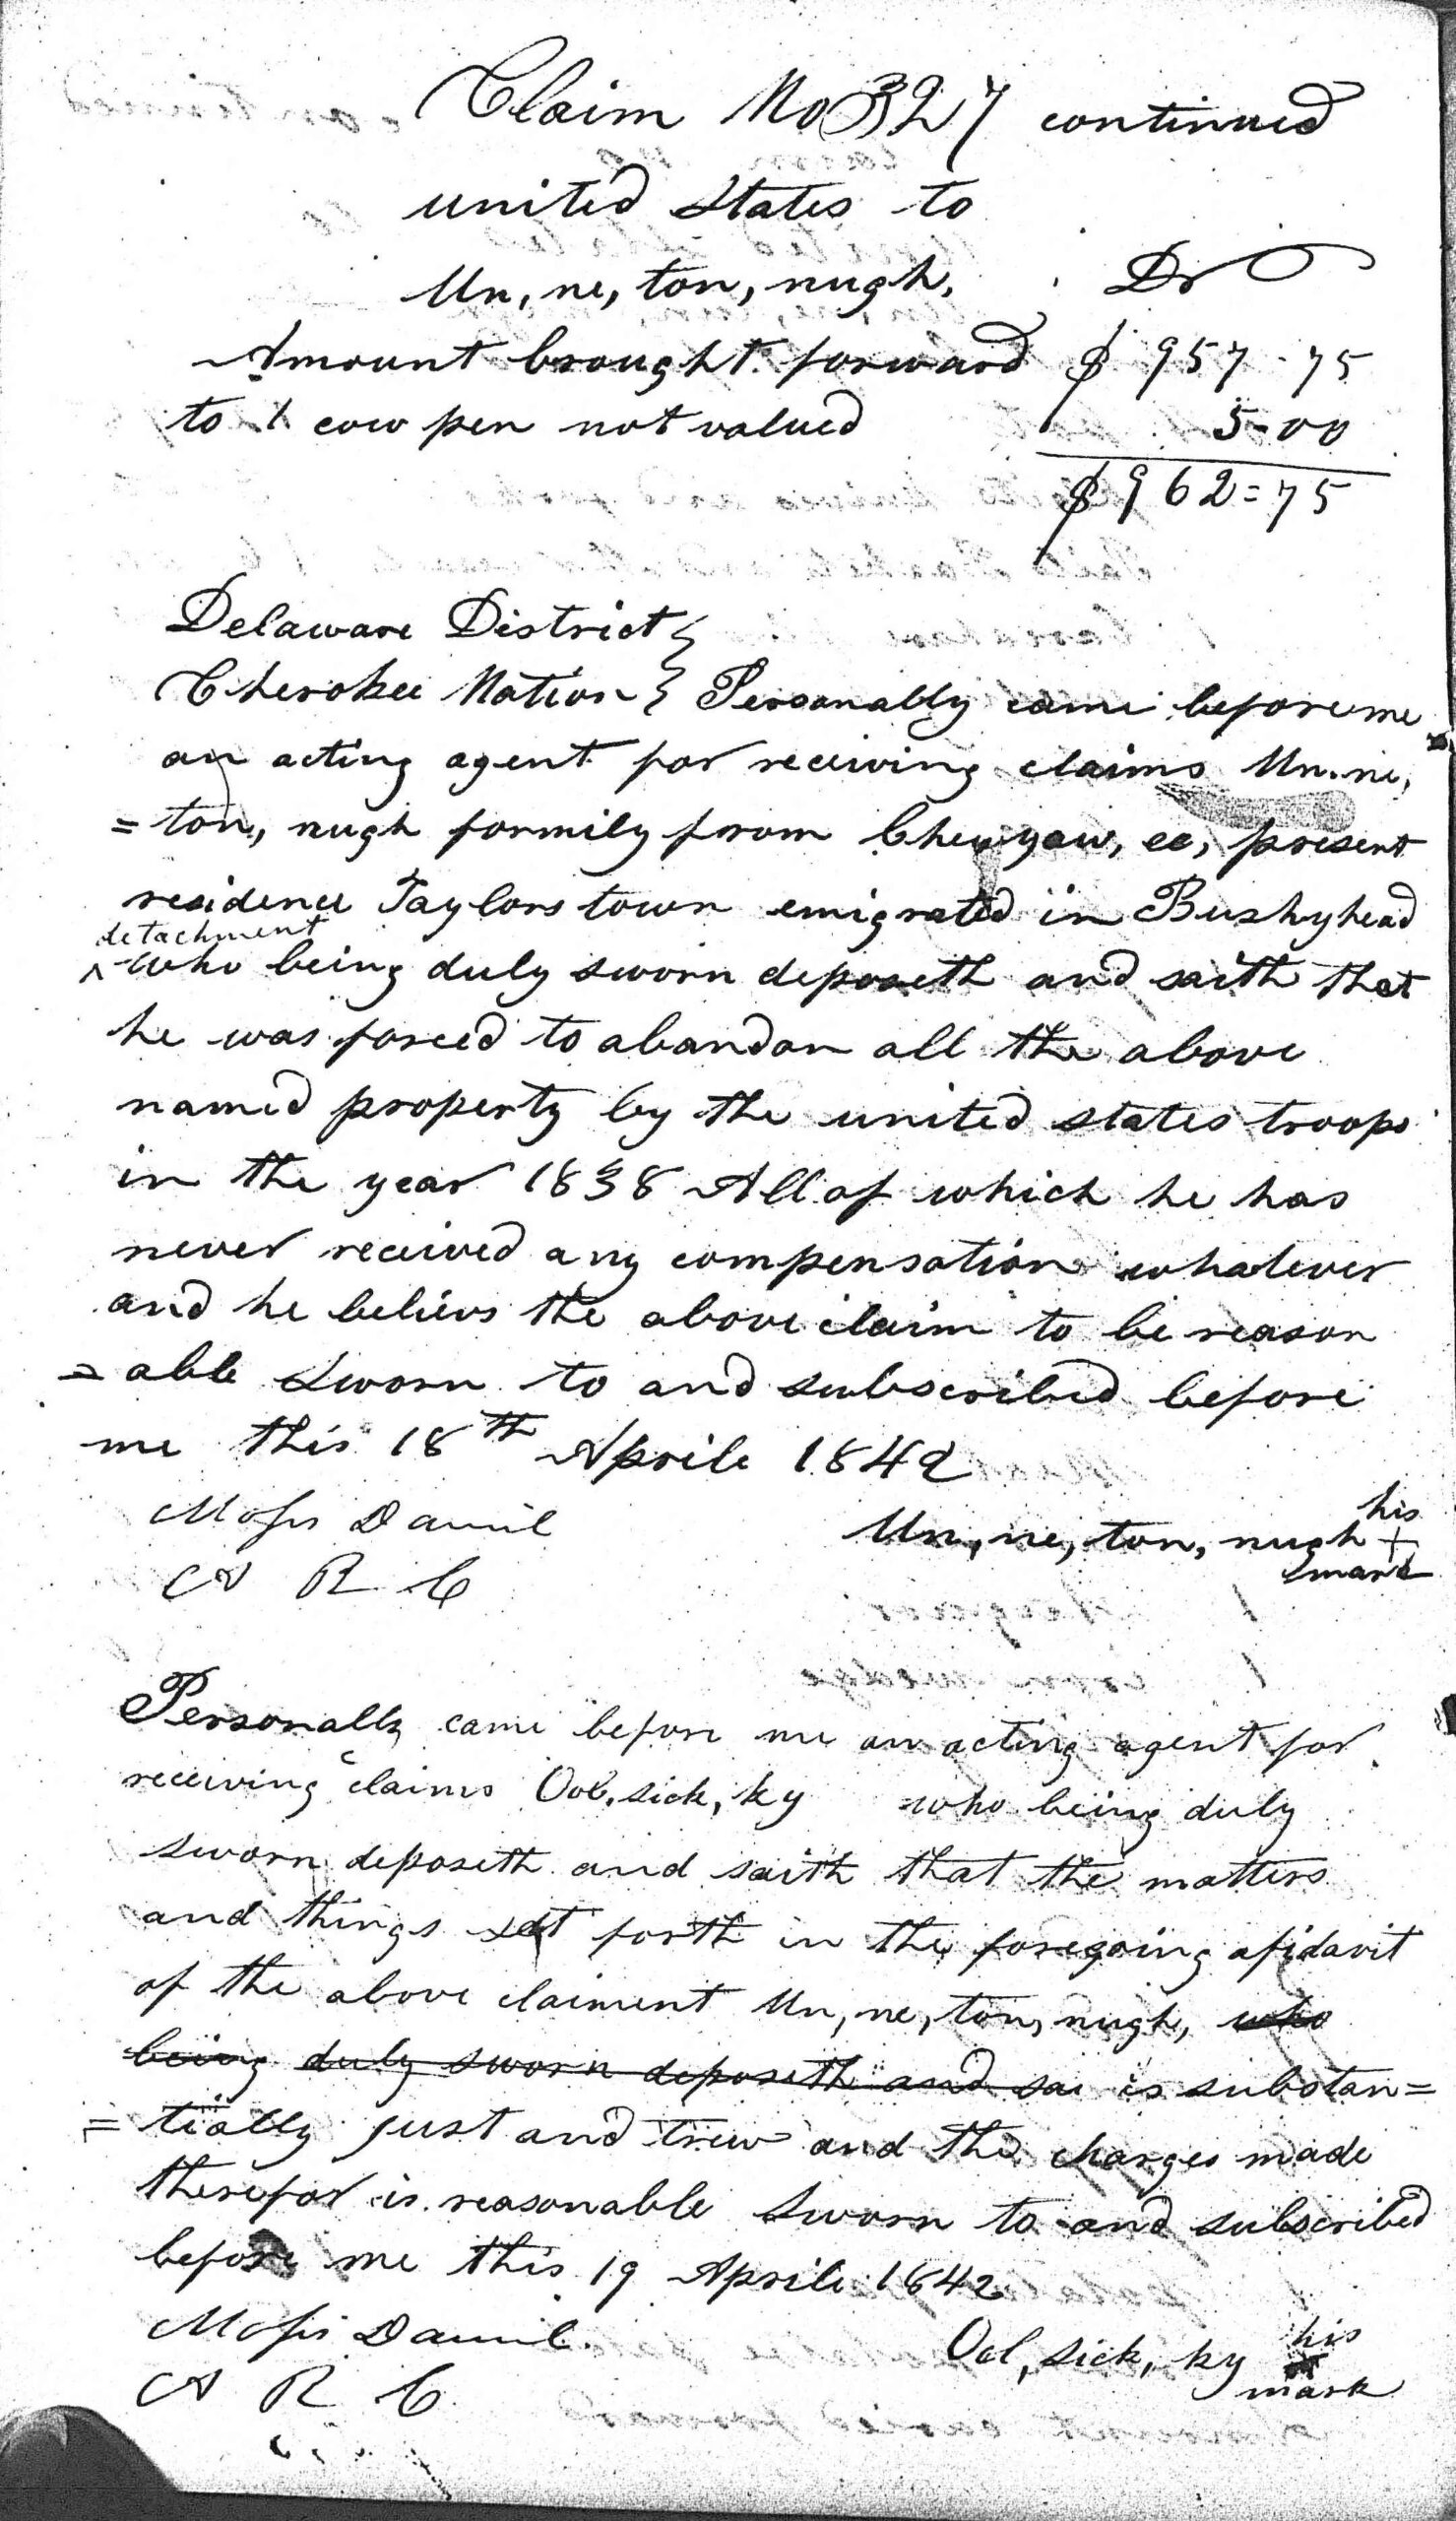 Claim No 327 continued
united States to
Un, ne, ton, nugh, Dr
Amount brought forward $ 957-75
to 1 cow pen not valued 5-00
$ 962=75
Delaware District }
Cherokee Nation } Personally came before me
an acting agent for receiving claims Un. ne,
= ton, nugh formily from Chewyaw, ee, present
residence Taylors town emigrated in Bushyhead
detachment
^ who being duly sworn deposeth and saith that
he was forced to abandon all the above
named property by the united states troops
in the year 1838 All of which he has
never received any compensation whatever
and he believs the above claim to be reason
= able Sworn to and subscribed before
me this 18th Aprile 1842
Moses Daniel
A R C
Un, ne, ton, nugh his
+
mark
Personally came before me an acting agent for
receiving claims Ool, sick, ky who being duly
sworn deposeth and saith that the matters
and things set forth in the foregoing afidavit
of the above claiment Un, ne, ton, nugh, who
being duly sworn deposeth and sai is substan=
= tially just and trew and the charges made
therefor is reasonable Sworn to and subscribed
before me this 19 Aprile 1842
Moses Daniel.
A R C
Ool, sick, ky his
mark